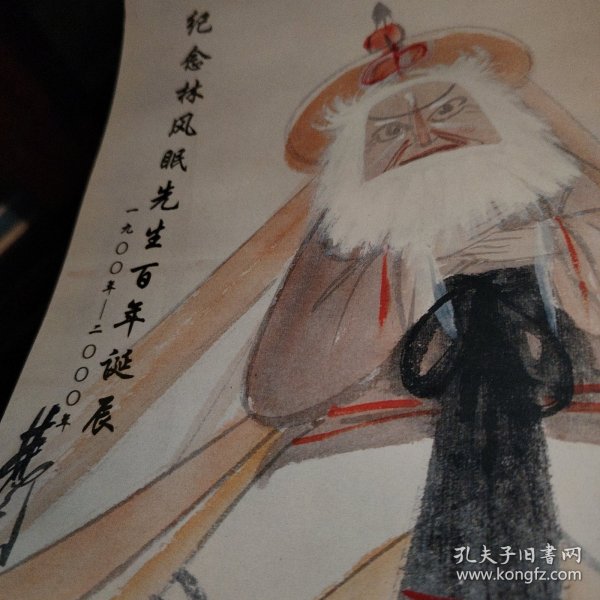 纪念林风眠先生百年诞辰
一九〇〇年—二〇〇〇年
孔夫子旧书网
www.kongfz.com